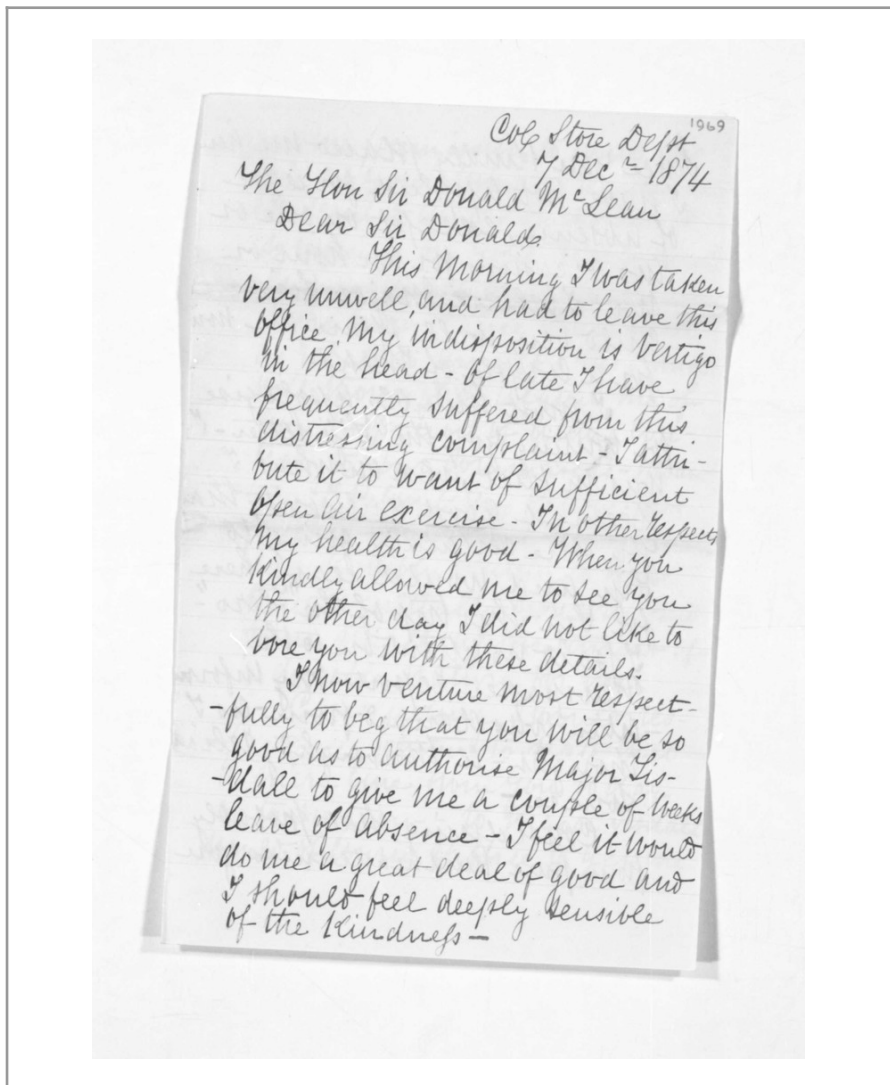 1969
Col Store Dept
7 Decr - 1874
The Hon Sir Donald McLean
Dear Sir Donald
This Morning I was taken
very unwell, and had to leave this
office. My indisposition is Vertigo
in the head - Of late I have
frequently suffered from this
distressing complaint - I attri-
bute it to want of sufficient
open air exercise - In other respects
my health is good - When you
kindly allowed me to see you
the other day I did not like to
bore you with these details.
I now venture most respect-
-fully to beg that you will be so
good as to authorise Major Tis-
-dall to give me a couple of weeks
leave of absence - I feel it would
do me a great deal of good and
I should feel deeply sensible
of the kindness -